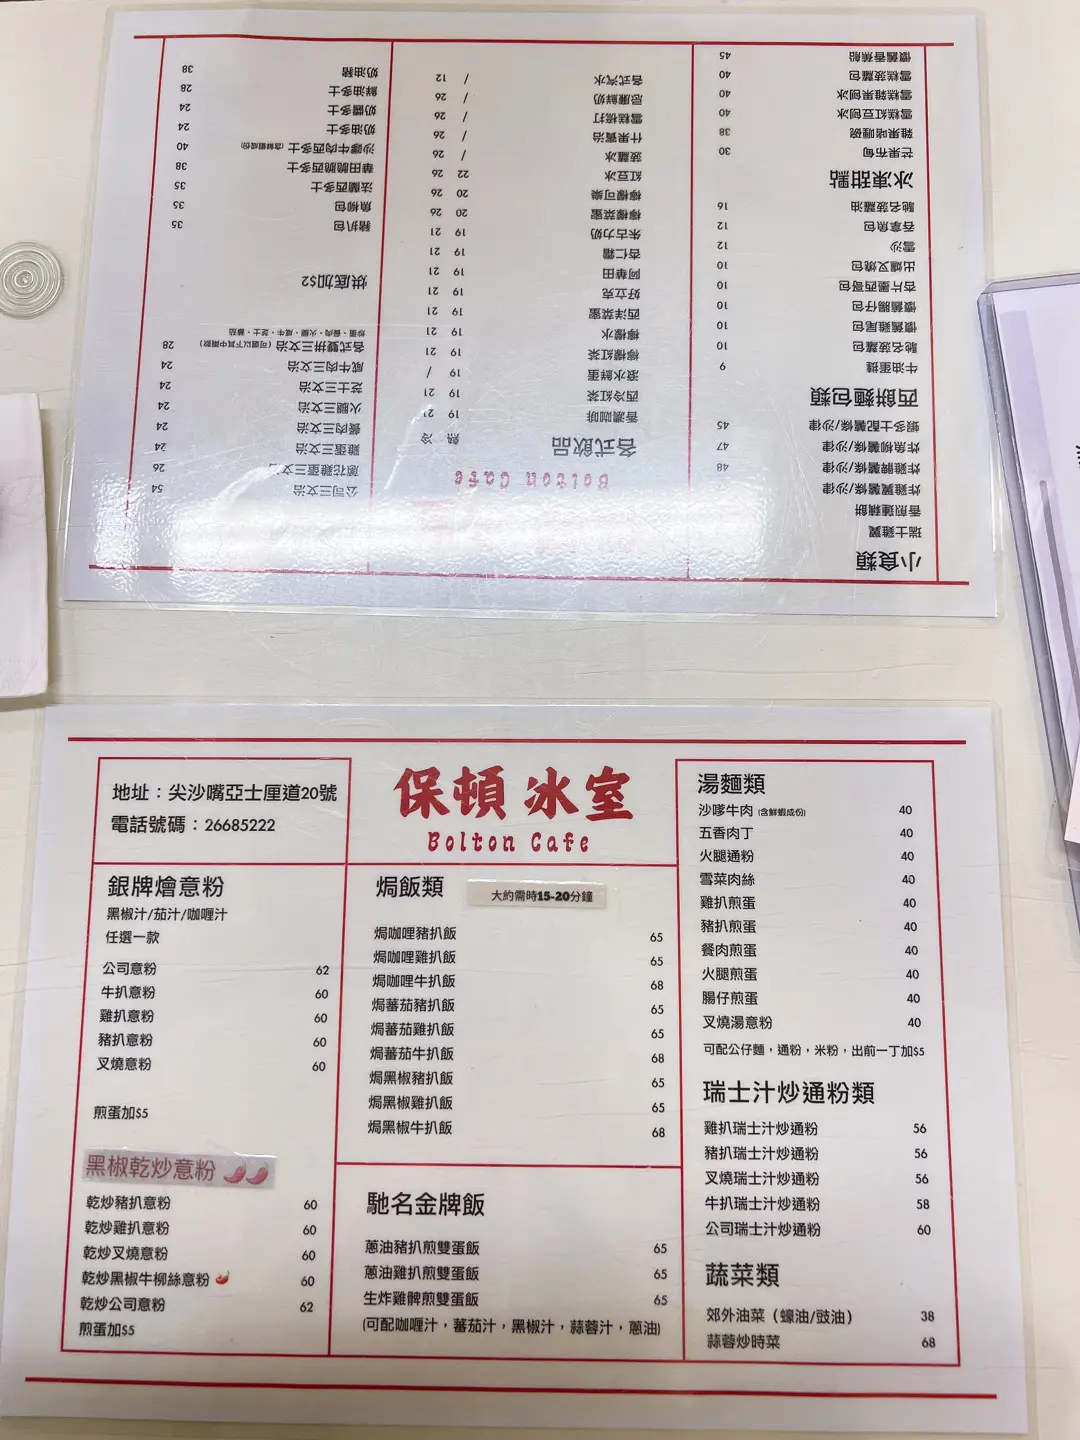 小食類
瑞士雞翼
香煎蓮藕餅
炸雞翼薯條/沙律
炸雞髀薯條/沙律 48
炸魚柳薯條/沙律 47
蝦多士配薯條/沙律 45
西餅麵包類
牛油蛋撻 9
馳名菠蘿包 10
懷舊雞尾包 10
懷舊腸仔包 10
杏片墨西哥包 10
出爐叉燒包 10
雪沙 12
吞拿魚包 12
馳名菠蘿油 16
冰凍甜點
芒果布甸 30
雜果啫喱碗 38
雪糕紅豆刨冰 40
雪糕雜果刨冰 40
雪糕菠蘿包 40
懷舊香蕉船 45
Bolton Cafe
各式飲品 熱 冷
香濃咖啡 19 21
西冷紅茶 19 21
滾水鮮蛋 19 /
檸檬紅茶 19 21
檸檬水 19 21
西洋菜蜜 19 21
好立克 19 21
阿華田 19 21
杏仁霜 19 21
朱古力奶 19 21
檸檬菜蜜 20 26
檸檬可樂 20 26
紅豆冰 22 26
菠蘿冰 / 26
什果賓治 / 26
雪糕梳打 / 26
忌廉鮮奶 / 26
各式汽水 / 12
公司三文治 54
蔥花雞蛋三文治 26
雞蛋三文治 24
餐肉三文治 24
火腿三文治 24
芝士三文治 24
咸牛肉三文治 24
各式雙拼三文治 (可選以下其中兩款) 28
炒蛋、餐肉、火腿、咸牛、芝士、蕃茄
烘底加$2
豬扒包 35
魚柳包 35
法蘭西多士 35
華田脆脆西多士 38
沙嗲牛肉西多士 (含鮮蝦成份) 40
奶油多士 24
奶醬多士 24
鮮油多士 28
奶油豬 38
地址：尖沙嘴亞士厘道20號
電話號碼：26685222
保頓冰室
Bolton Cafe
銀牌燴意粉
黑椒汁/茄汁/咖喱汁
任選一款
公司意粉 62
牛扒意粉 60
雞扒意粉 60
豬扒意粉 60
叉燒意粉 60
煎蛋加$5
黑椒乾炒意粉
乾炒豬扒意粉 60
乾炒雞扒意粉 60
乾炒叉燒意粉 60
乾炒黑椒牛柳絲意粉 60
乾炒公司意粉 62
煎蛋加$5
焗飯類 大約需時15-20分鐘
焗咖哩豬扒飯 65
焗咖哩雞扒飯 65
焗咖哩牛扒飯 68
焗蕃茄豬扒飯 65
焗蕃茄雞扒飯 65
焗蕃茄牛扒飯 68
焗黑椒豬扒飯 65
焗黑椒雞扒飯 65
焗黑椒牛扒飯 68
馳名金牌飯
蔥油豬扒煎雙蛋飯 65
蔥油雞扒煎雙蛋飯 65
生炸雞髀煎雙蛋飯 65
(可配咖喱汁，蕃茄汁，黑椒汁，蒜蓉汁，蔥油)
湯麵類
沙嗲牛肉 (含鮮蝦成份) 40
五香肉丁 40
火腿通粉 40
雪菜肉絲 40
雞扒煎蛋 40
豬扒煎蛋 40
餐肉煎蛋 40
火腿煎蛋 40
腸仔煎蛋 40
叉燒湯意粉 40
可配公仔麵，通粉，米粉，出前一丁加$5
瑞士汁炒通粉類
雞扒瑞士汁炒通粉 56
豬扒瑞士汁炒通粉 56
叉燒瑞士汁炒通粉 56
牛扒瑞士汁炒通粉 58
公司瑞士汁炒通粉 60
蔬菜類
郊外油菜（蠔油/豉油） 38
蒜蓉炒時菜 68